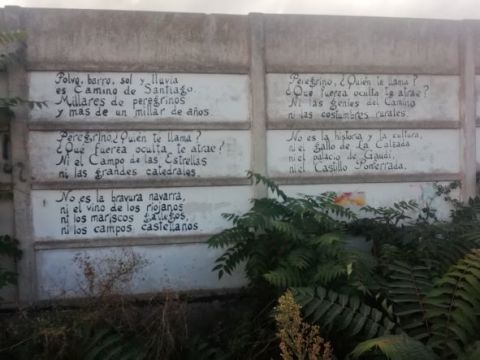 Polvo, barro, sol y lluvia
es Camino de Santiago.
Millares de peregrinos
y mas de un millar de años.
Peregrino ¿Quién te llama?
¿Qué fuerza oculta te atrae?
Ni el Campo de las Estrellas
ni las grandes catedrales.
No es la bravura navarra,
ni el vino de los riojanos
ni los mariscos gallegos,
ni los campos castellanos.
Peregrino, ¿Quién te llama?
¿Qué fuerza oculta te atrae?
Ni las gentes del Camino
ni las costumbres rurales.
No es la historia y la cultura,
ni el gallo de La Calzada
ni el palacio de Gaudí,
ni el Castillo Ponferrada.